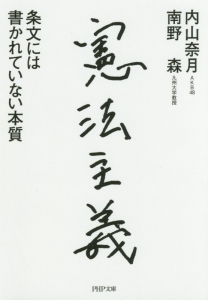 内山奈月
AKB48
南野 森
九州大学教授
憲法主義
条文には
書かれていない本質
PHP文庫